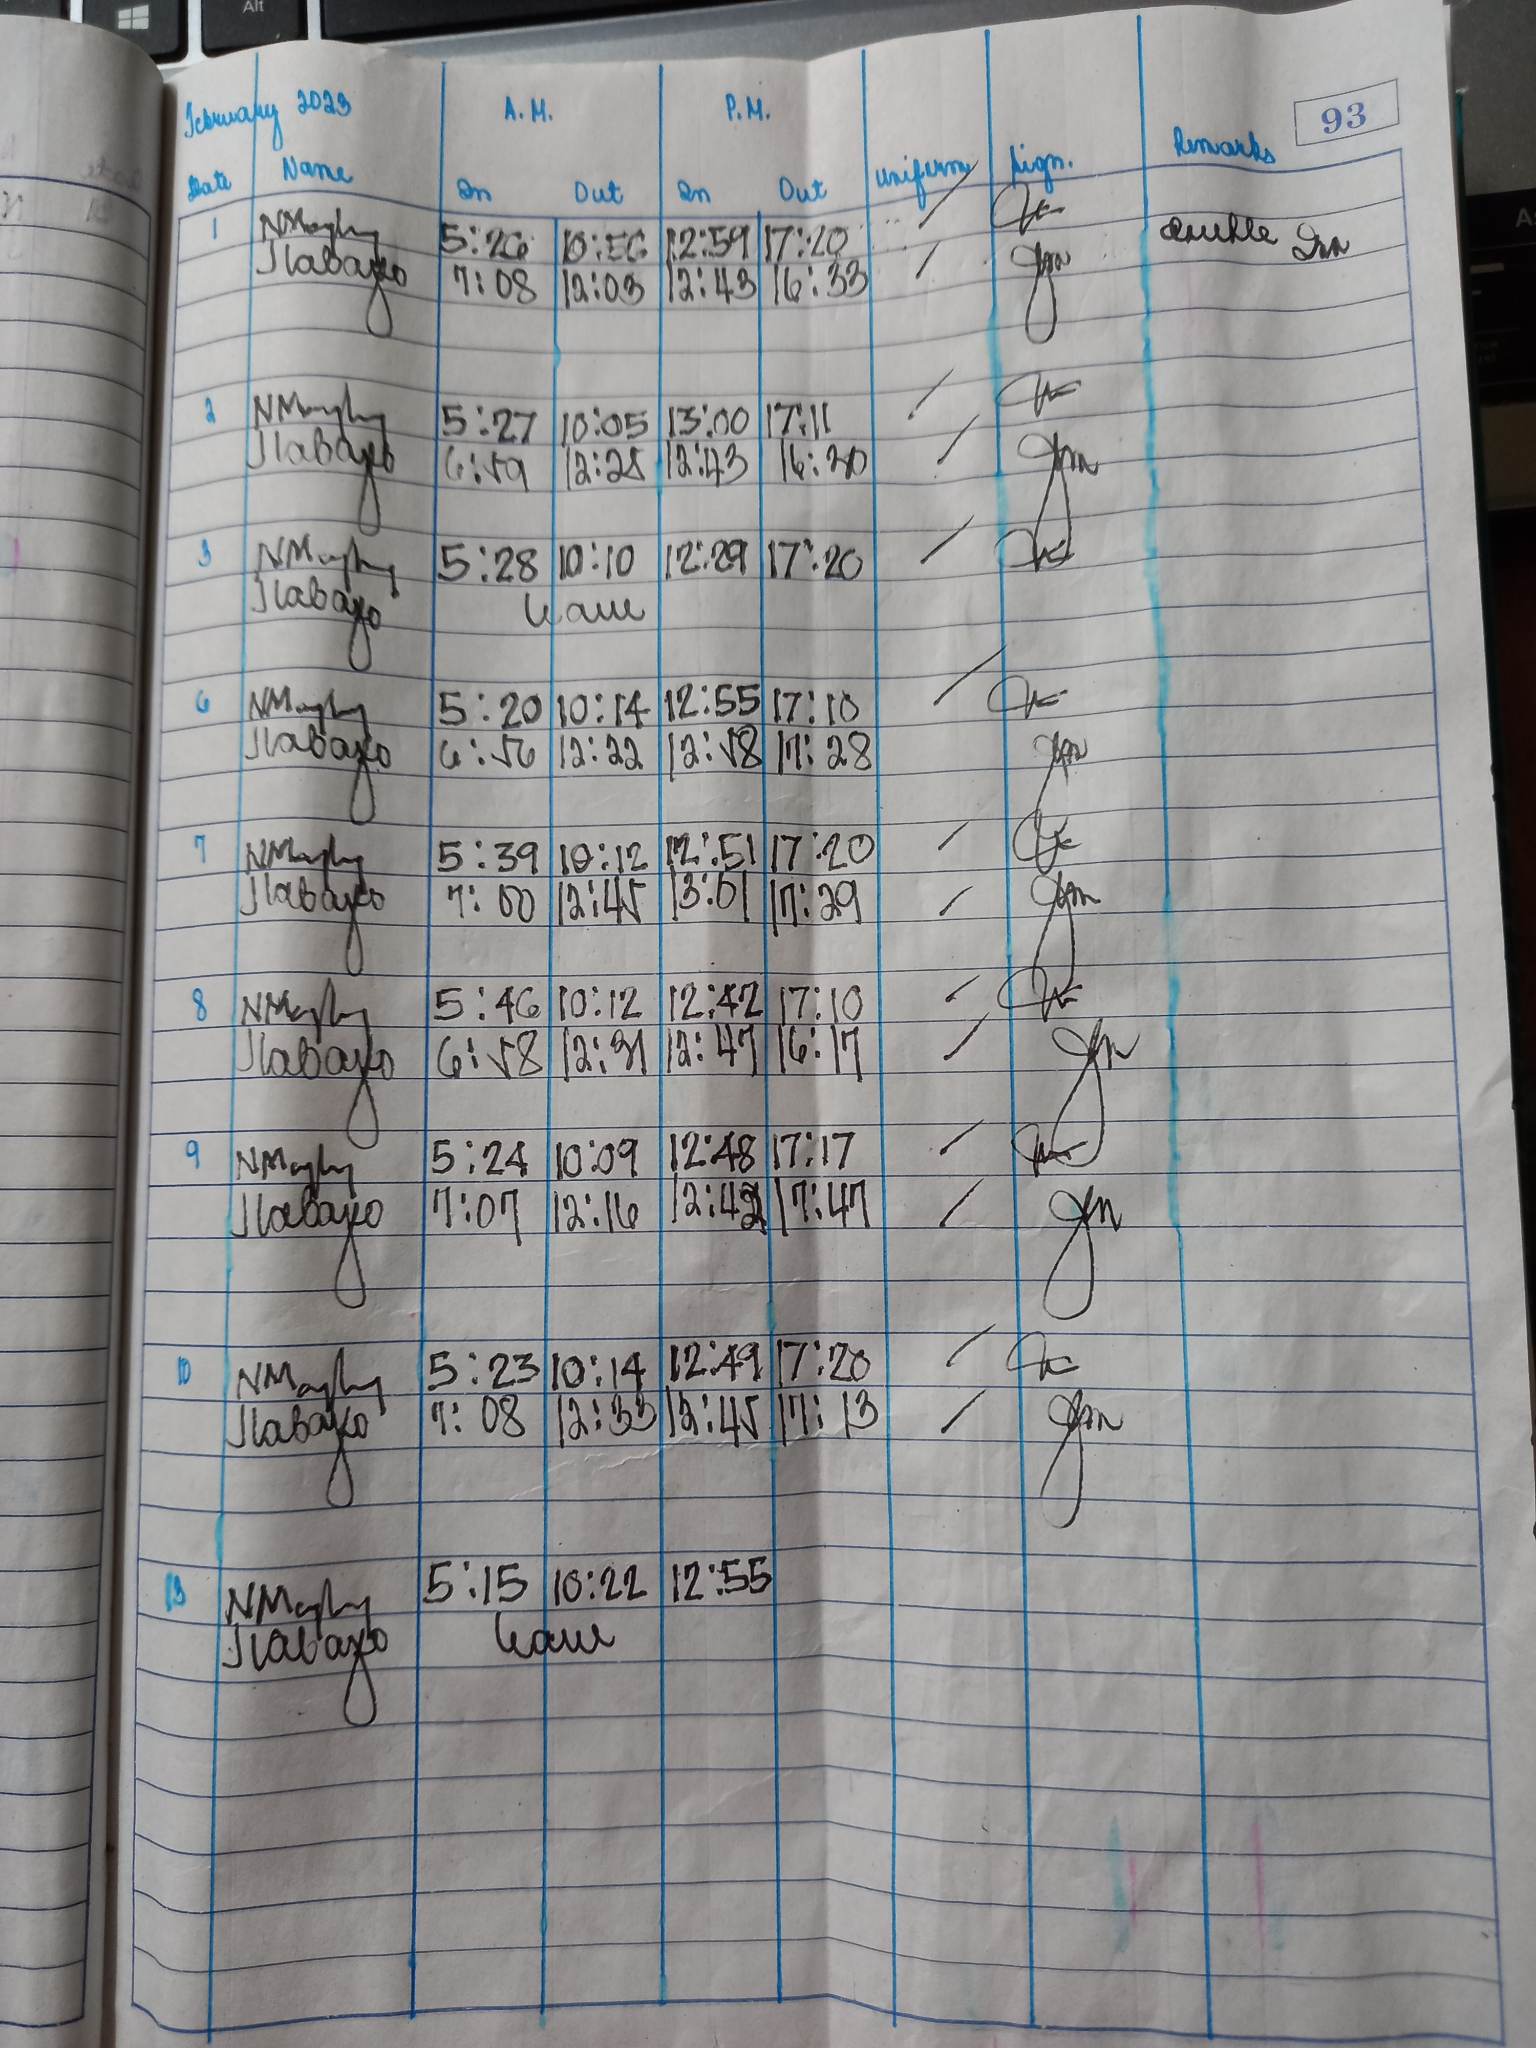 Alt
93
February 2023 A.M. P.M.
Date Name In Out In Out Uniform Sign. Remarks
1 5:26 12:59 17:20 double Inn
Jlabayo 7:08 12:03 12:43 16:33
2 5:27 10:05 13:00 17:11
Jlabayo 6:59 12:25 12:43 16:30
3 5:28 10:10 12:29 17:20
Jlabayo Leave
6 5:20 10:14 12:55 17:10
Jlabayo 6:56 12:22 12:58 17:28
7 5:39 10:12 12:51 17:20
Jlabayo 7:00 12:45 13:01 17:29
8 5:46 10:12 12:42 17:10
Jlabayo 6:58 12:31 12:47 16:17
9 5:24 10:09 12:48 17:17
Jlabayo 7:07 12:16 12:42 17:47
10 5:23 10:14 12:49 17:20
Jlabayo 7:08 12:33 12:45 17:13
13 5:15 10:22 12:55
Jlabayo Leave